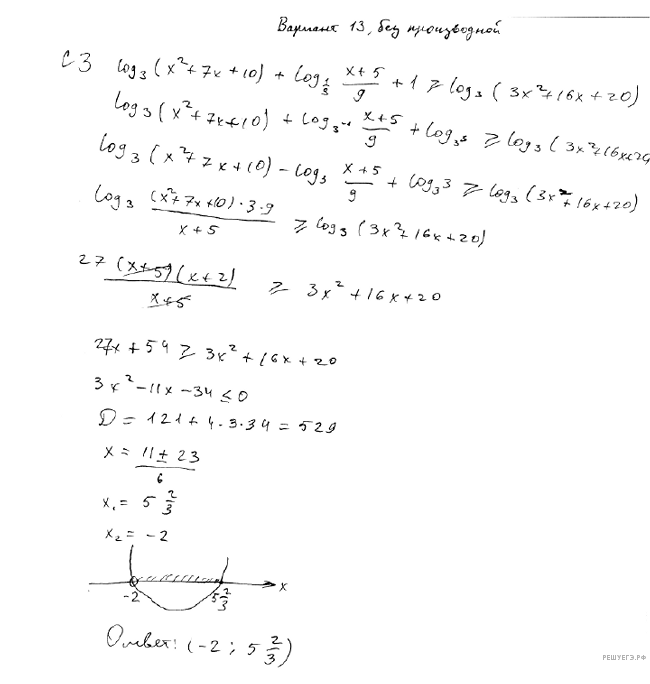 Вариант 13, без производной
C3 log₃(x²+7x+10) + log_{1/3} (x+5)/9 + 1 ≥ log₃(3x²+16x+20)
log₃(x²+7x+10) + log_{3⁻¹} (x+5)/9 + log₃3 ≥ log₃(3x²+16x+20
log₃(x²+7x+10) - log₃ (x+5)/9 + log₃3 ≥ log₃(3x²+16x+20)
log₃ ((x²+7x+10)·3·9)/(x+5) ≥ log₃(3x²+16x+20)
27 ((x+5)(x+2))/(x+5) ≥ 3x²+16x+20
27x+54 ≥ 3x²+16x+20
3x²-11x-34 ≤ 0
D = 121+4·3·34 = 529
x = (11±23)/6
x₁ = 5 2/3
x₂ = -2
-2 5 2/3 x
Ответ: (-2; 5 2/3)
РЕШУЕГЭ.РФ